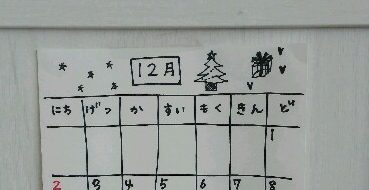 12月
にち げつ か すい もく きん ど
1
2 3 4 5 6 7 8